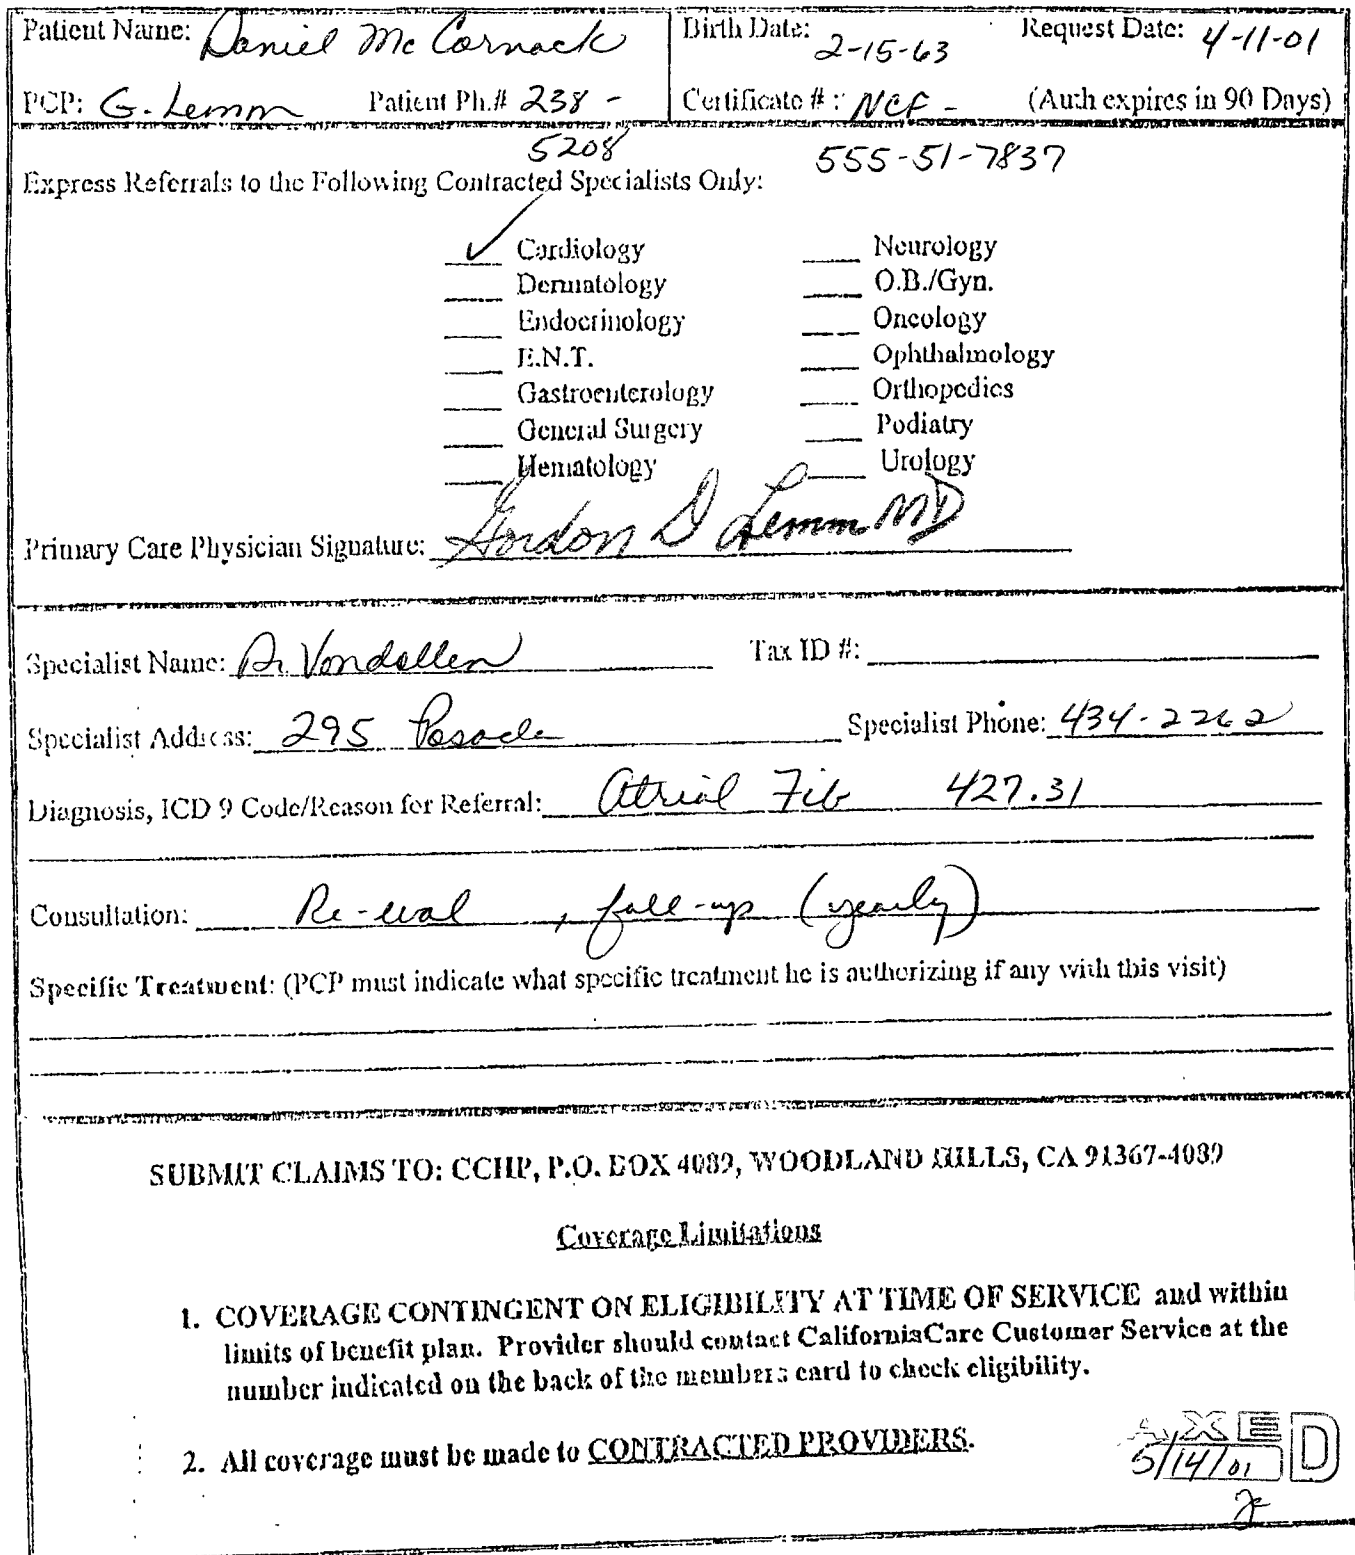 Patient Name: Daniel McCornack Birth Date: 2-15-63 Request Date: 4-11-01
PCP: G. Lemm Patient Ph.# 238 - Certificate # : NCF - (Auth expires in 90 Days)
5208 555-51-7837
Express Referrals to the Following Contracted Specialists Only:
✓ Cardiology ____ Neurology
____ Dermatology ____ O.B./Gyn.
____ Endocrinology ____ Oncology
____ E.N.T. ____ Ophthalmology
____ Gastroenterology ____ Orthopedics
____ General Surgery ____ Podiatry
____ Hematology ____ Urology
Primary Care Physician Signature: Gordon D Lemm MD
Specialist Name: Dr. Vondollen Tax ID #:
Specialist Address: 295 Posada Specialist Phone: 434-2262
Diagnosis, ICD 9 Code/Reason for Referral: Atrial Fib 427.31
Consultation: Re-eval, foll-up (yearly)
Specific Treatment: (PCP must indicate what specific treatment he is authorizing if any with this visit)
SUBMIT CLAIMS TO: CCHP, P.O. BOX 4089, WOODLAND HILLS, CA 91367-4089
Coverage Limitations
1. COVERAGE CONTINGENT ON ELIGIBILITY AT TIME OF SERVICE and within
limits of benefit plan. Provider should contact CaliforniaCare Customer Service at the
number indicated on the back of the members card to check eligibility.
2. All coverage must be made to CONTRACTED PROVIDERS.
AXED
5/14/01